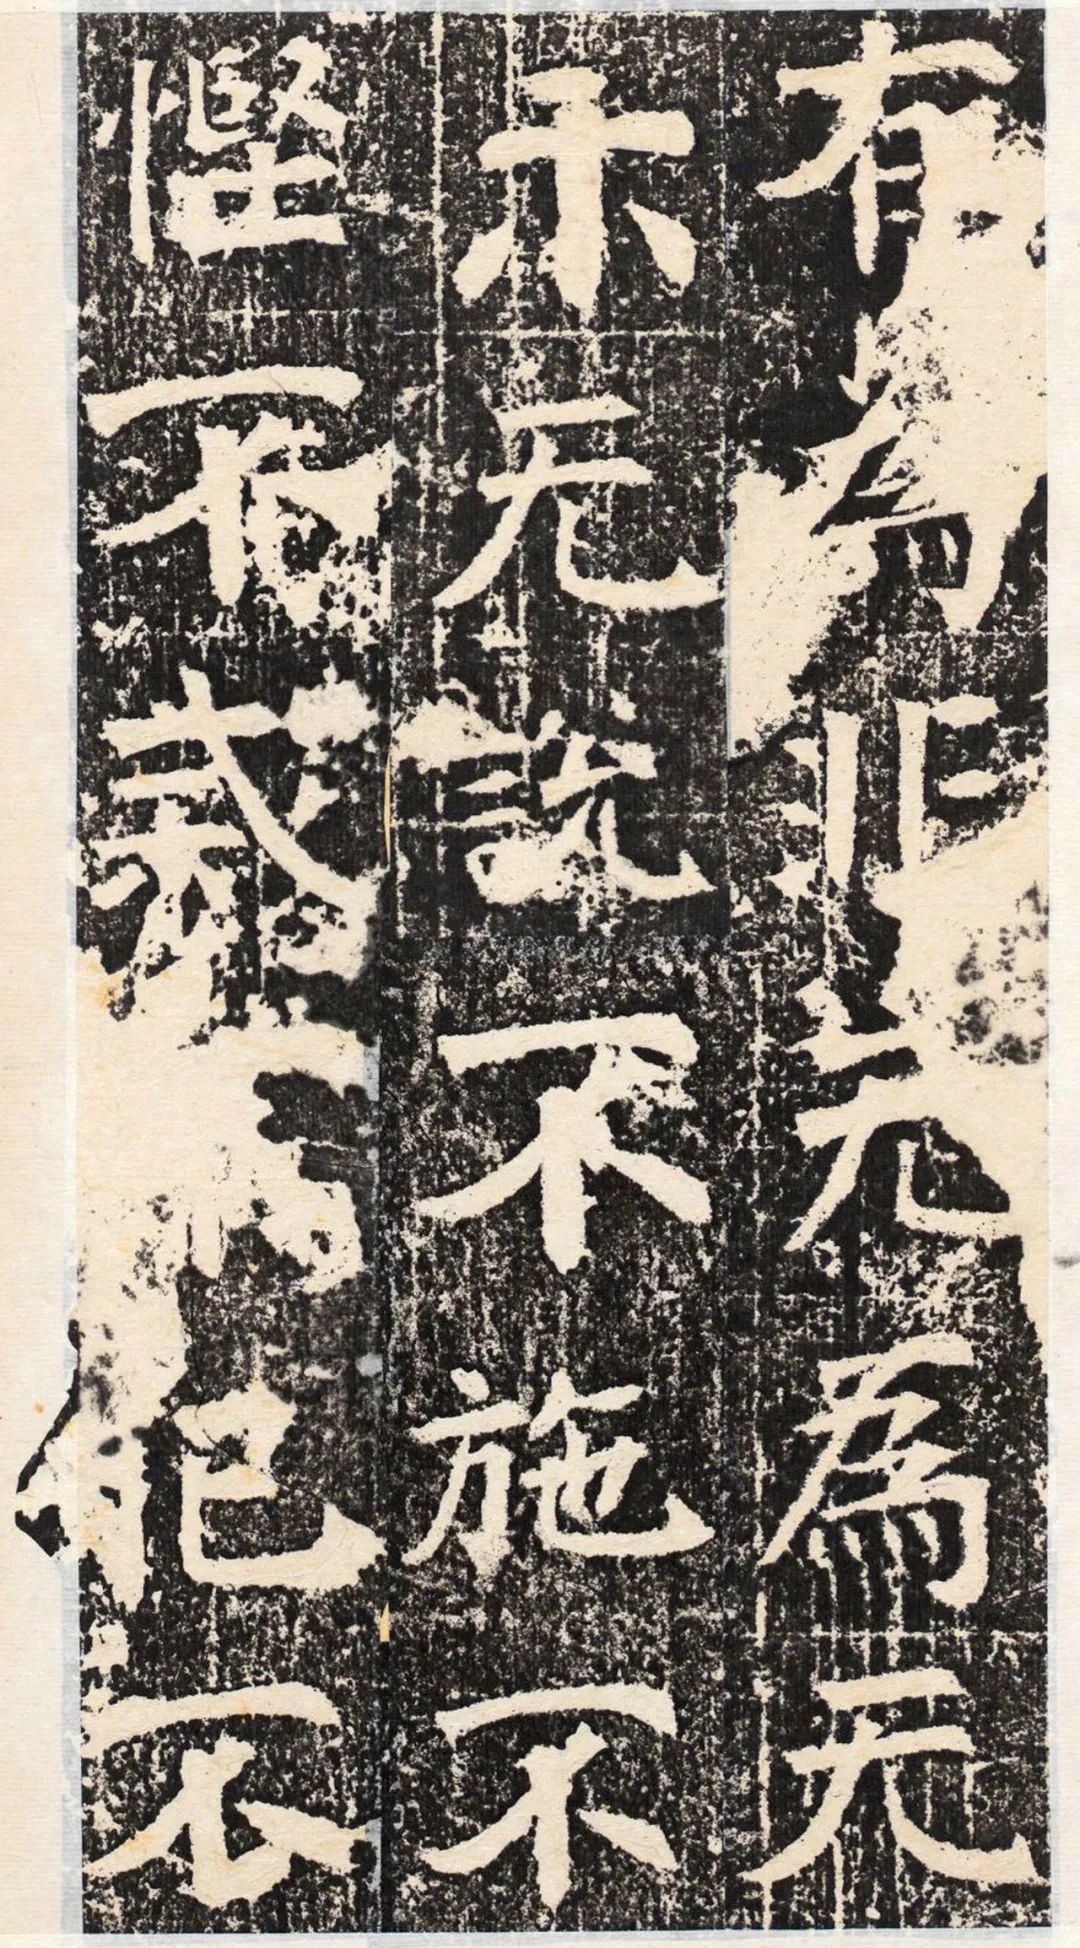 有為非无為无
示无說不施不
慳不戒不犯不